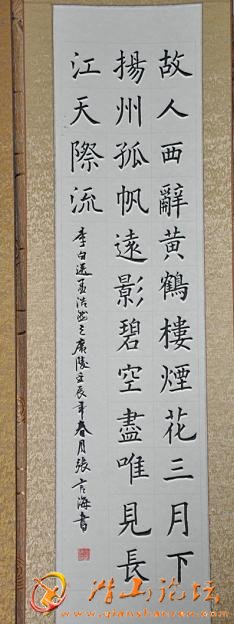 故人西辭黃鶴樓煙花三月下
揚州孤帆遠影碧空盡唯見長
江天際流
李白送孟浩然之廣陵壬辰年春月張言海書
潜山论坛
www.qianshanren.com